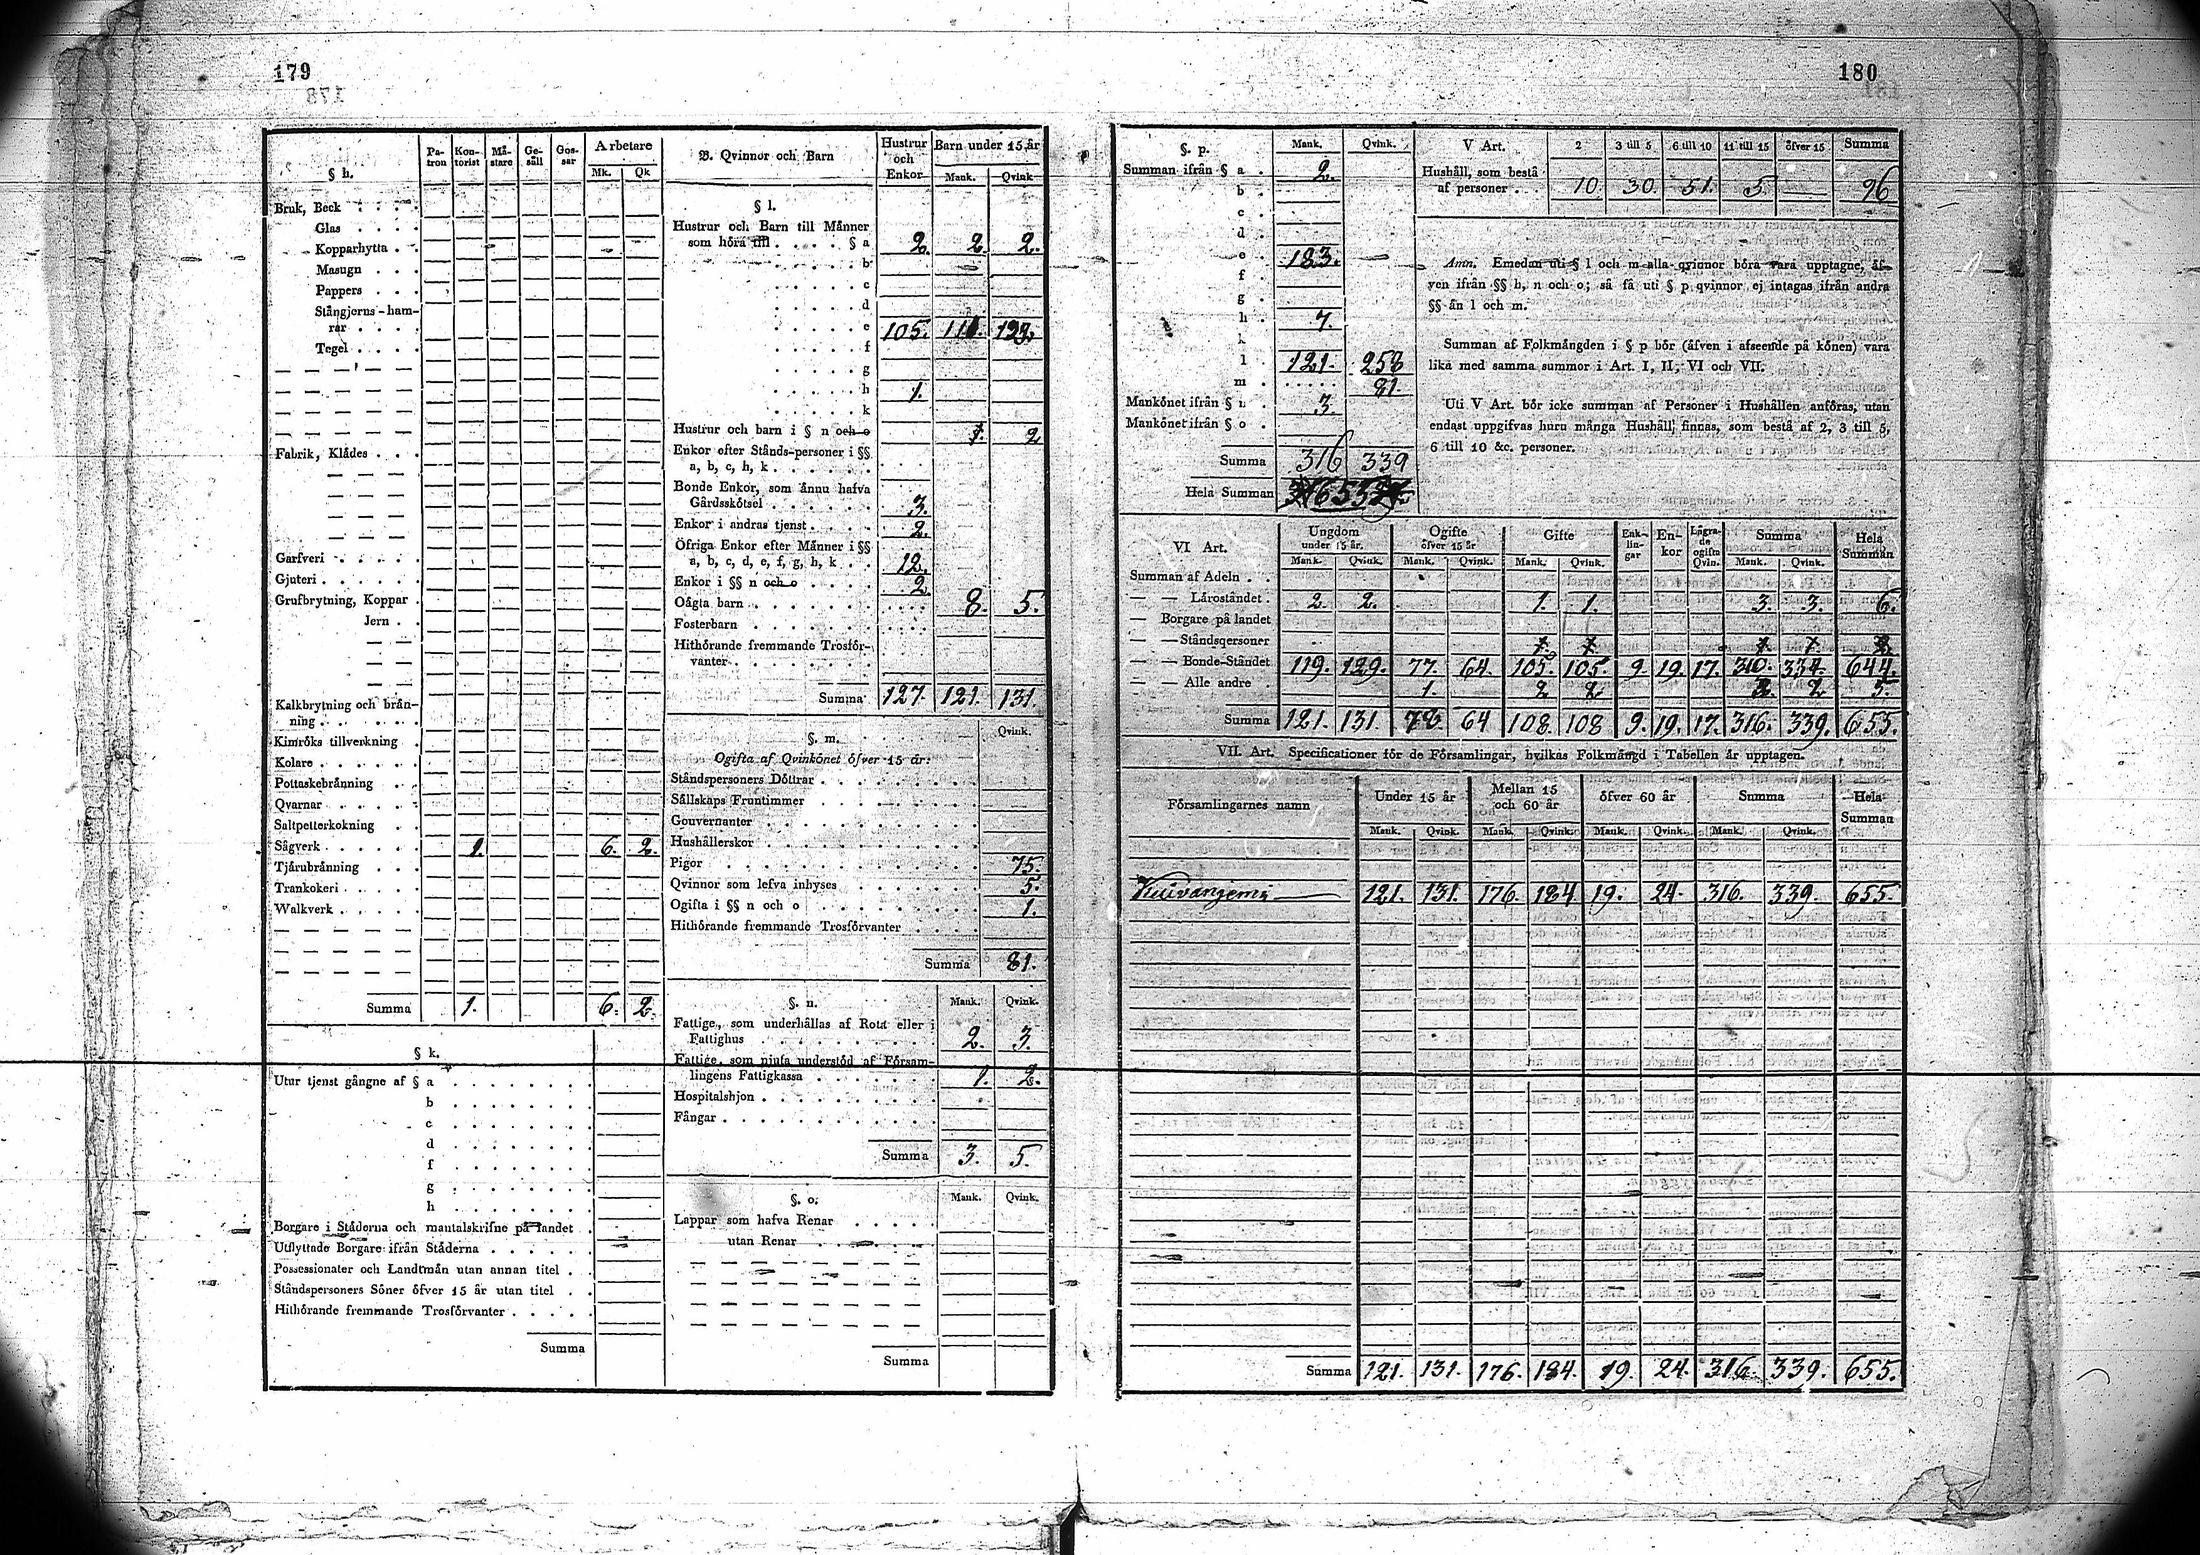 179
§ h.
Pa-tron Kon-torist Må-stare Ge-säll Gos-sar Arbetare
Mk. Qk
Bruk, Beck
Glas
Kopparhytta
Masugn
Pappers
Stångjerns-ham-
rar
Tegel
Fabrik, Klädes
Garfveri
Gjuteri
Grufbrytning, Koppar
Jern
Kalkbrytning och brån-
ning
Kimröks tillverkning
Kolare
Pottaskebränning
Qvarnar
Saltpetterkokning
Sågverk 1. 6. 2.
Tjärubränning
Trankokeri
Walkverk
Summa 1. 6. 2.
§ k.
Utur tjenst gångne af § a
b
c
d
f
g
h
Borgare i Städerna och mantalskrifne på landet
Utflyttade Borgare ifrån Städerna
Possessionater och Landtmän utan annan titel
Ståndspersoners Söner öfver 15 år utan titel
Hithörande fremmande Trosförvanter
Summa
B. Qvinnor och Barn Hustrur och Enkor Barn under 15 år
Mank. Qvink
§ l.
Hustrur och Barn till Männer
som höra till § a 2. 2. 2.
b
c
d
e 105. 111. 122.
f
g
h 1.
k
Hustrur och barn i § n och o 2
Enkor efter Stånds-personer i §§
a, b, c, h, k
Bonde Enkor, som ännu hafva
Gårdsskötsel 3.
Enkor i andras tjenst 2.
Öfriga Enkor efter Männer i §§
a, b, c, d, e, f, g, h, k 12.
Enkor i §§ n och o 2
Oägta barn 8. 5.
Fosterbarn
Hithörande fremmande Trosför-
vanter
Summa 127. 121. 131.
§. m. Qvink.
Ogifta af Qvinkönet öfver 15 år:
Ståndspersoners Döttrar
Sällskaps Fruntimmer
Gouvernanter
Hushållerskor
Pigor 75.
Qvinnor som lefva inhyses 5.
Ogifta i §§ n och o 1.
Hithörande fremmande Trosförvanter
Summa 81.
§. n. Mank. Qvink.
Fattige, som underhållas af Rota eller i
Fattighus 2. 3.
Fattige, som njuta understöd af Församl-
lingens Fattigkassa 1. 2.
Hospitalshjon
Fångar
Summa 3. 5.
§. o. Mank. Qvink.
Lappar som hafva Renar
utan Renar
Summa
180
§. p. Mank. Qvink.
Summan ifrån § a 2.
b
c
d
e 183.
f
g
h 7.
k
l 121. 258
m 81.
Mankönet ifrån § n 3.
Mankönet ifrån § o
Summa 316 339
Hela Summan
V Art. 2 3 till 5 6 till 10 11 till 15 öfver 15 Summa
Hushåll, som bestå
af personer 10. 30. 51. 5. — 96
Anm. Emedan uti § l och m alla qvinnor böra vara upptagne, äf-
ven ifrån §§ h, n och o; så få uti § p qvinnor ej intagas ifrån andra
§§ än l och m.
Summan af Folkmängden i § p bör (äfven i afseende på könen) vara
lika med samma summor i Art. I, II, VI och VII.
Uti V Art. bör icke summan af Personer i Hushållen anföras, utan
endast uppgifvas huru många Hushåll finnas, som bestå af 2, 3 till 5,
6 till 10 &c. personer.
VI Art. Ungdom under 15 år. Ogifte öfver 15 år Gifte Enk-lin-gar En-kor Lägra-de ogifta Qvin. Summa Hela Summan
Mank. Qvink. Mank. Qvink. Mank. Qvink. Mank. Qvink.
Summan af Adeln
— — Lärostandet 2. 2. 1. 1. 3. 3. 6.
— Borgare på landet
— — Ståndspersoner
— — Bonde-Ståndet 119. 129. 77. 64. 105. 105. 9. 19. 17. 310. 334. 644.
— — Alle andre 1. 2 2 2 5.
Summa 121. 131. 78. 64 108. 108 9. 19. 17. 316. 339. 655.
VII. Art. Specificationer för de Församlingar, hvilkas Folkmängd i Tabellen är upptagen.
Församlingarnes namn Under 15 år Mellan 15 och 60 år öfver 60 år Summa Hela Summan
Mank. Qvink. Mank. Qvink. Mank. Qvink. Mank. Qvink.
Kuivanjemi 121. 131. 176. 184 19. 24. 316. 339. 655.
Summa 121. 131. 176. 184. 19. 24. 316. 339. 655.